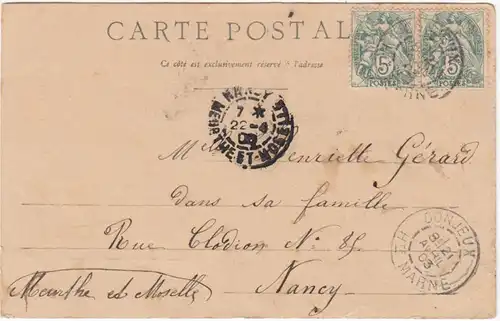 CARTE POSTALE
Ce côté est exclusivement réservé à l'adresse
5
POSTES
5
POSTES
NANCY
7 *
22-4
03
MEURTHE-ET-MOSELLE
Henriette Gérard
dans sa famille
Rue Clodion N:
DONJEUX
21
AVRIL
03
Hte MARNE
Meurthe et Moselle
Nancy